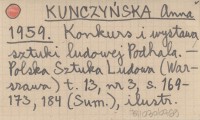 KUNCZYŃSKA Anna
1959. Konkurs i wystawa
sztuki ludowej Podhala. –
Polska Sztuka Ludowa (War-
szawa) t. 13, nr 3, s. 169-
173, 184 (Sum.), ilustr.